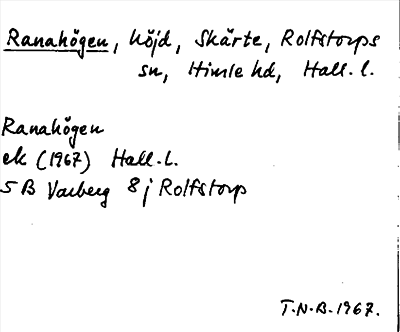 Ranahögen, höjd, Skärte, Rolfstorps
sn, Himle hd, Hall. l.
Ranahögen
ek (1967) Hall. l.
5 B Varberg 8 j Rolfstorp
T.N.B. 1967.